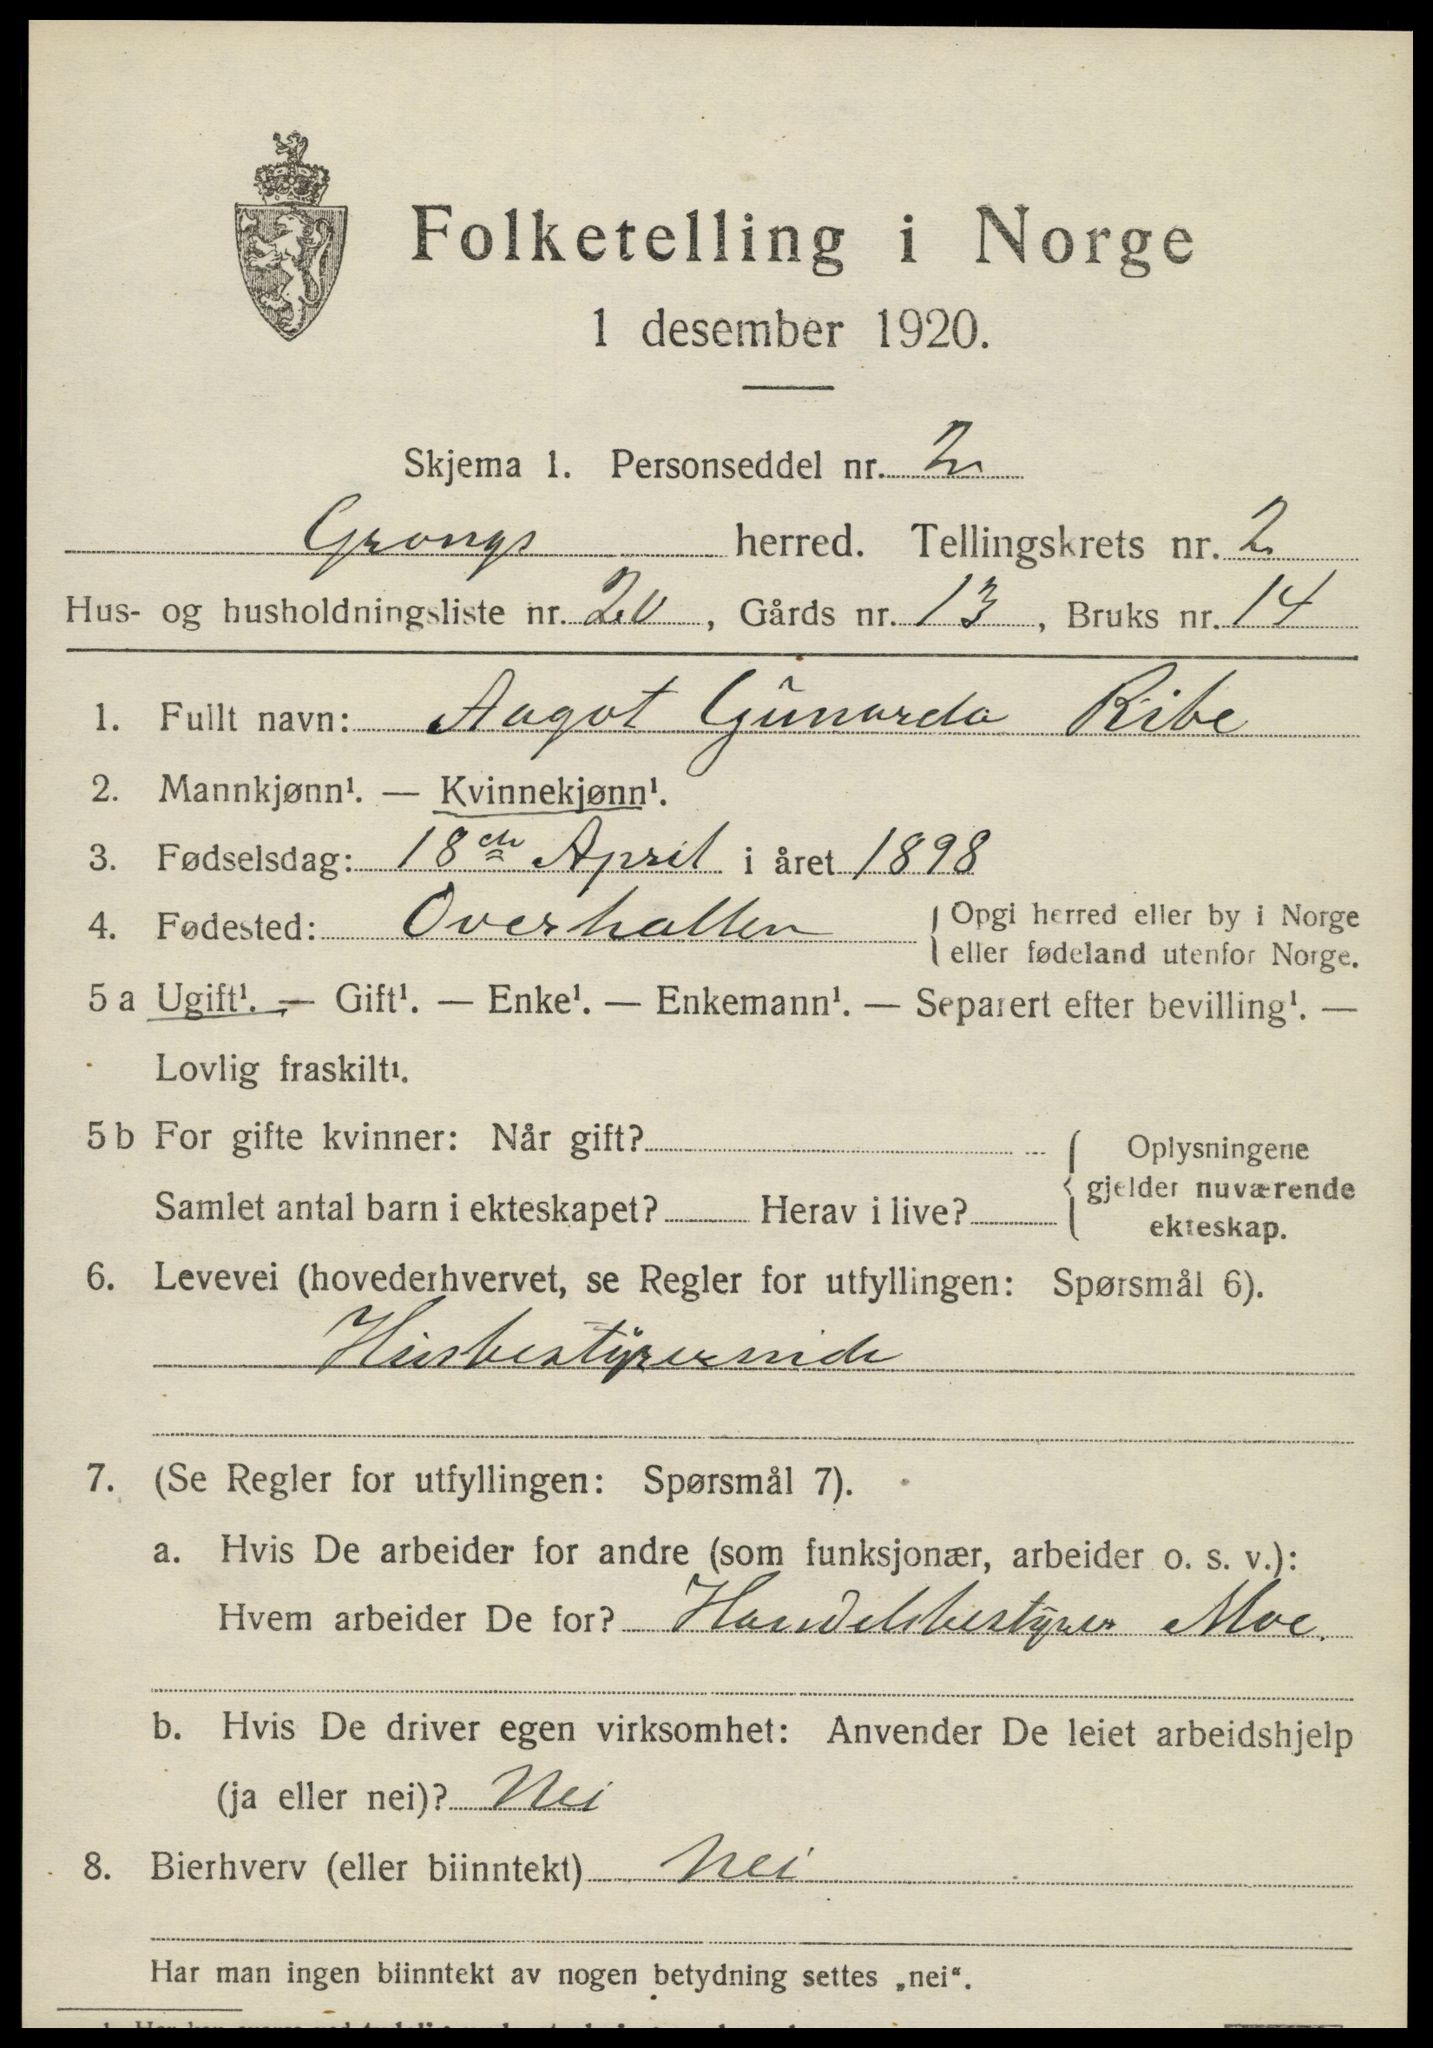 Folketelling i Norge
1 desember 1920.
Skjema 1. Personseddel nr. 2
Grongs herred. Tellingskrets nr. 2
Hus- og husholdningsliste nr. 20, Gårds nr. 13, Bruks nr. 14
1. Fullt navn: Aagot Gunarda Ribe
2. Mannkjønn¹. — Kvinnekjønn¹.
3. Fødselsdag: 18de April i året 1898
4. Fødested: Overhallen { Opgi herred eller by i Norge
eller fødeland utenfor Norge.
5 a Ugift¹. — Gift¹. — Enke¹. — Enkemann¹. — Separert efter bevilling¹. —
Lovlig fraskilt¹.
5 b For gifte kvinner: Når gift? { Oplysningene
gjelder nuværende
Samlet antal barn i ekteskapet? Herav i live? ekteskap.
6. Levevei (hovederhvervet, se Regler for utfyllingen: Spørsmål 6).
Husbestyrerinde
7. (Se Regler for utfyllingen: Spørsmål 7).
a. Hvis De arbeider for andre (som funksjonær, arbeider o. s. v.):
Hvem arbeider De for? Handelsbestyrer Moe.
b. Hvis De driver egen virksomhet: Anvender De leiet arbeidshjelp
(ja eller nei)? Nei
8. Bierhverv (eller biinntekt) Nei
Har man ingen biinntekt av nogen betydning settes „nei“.